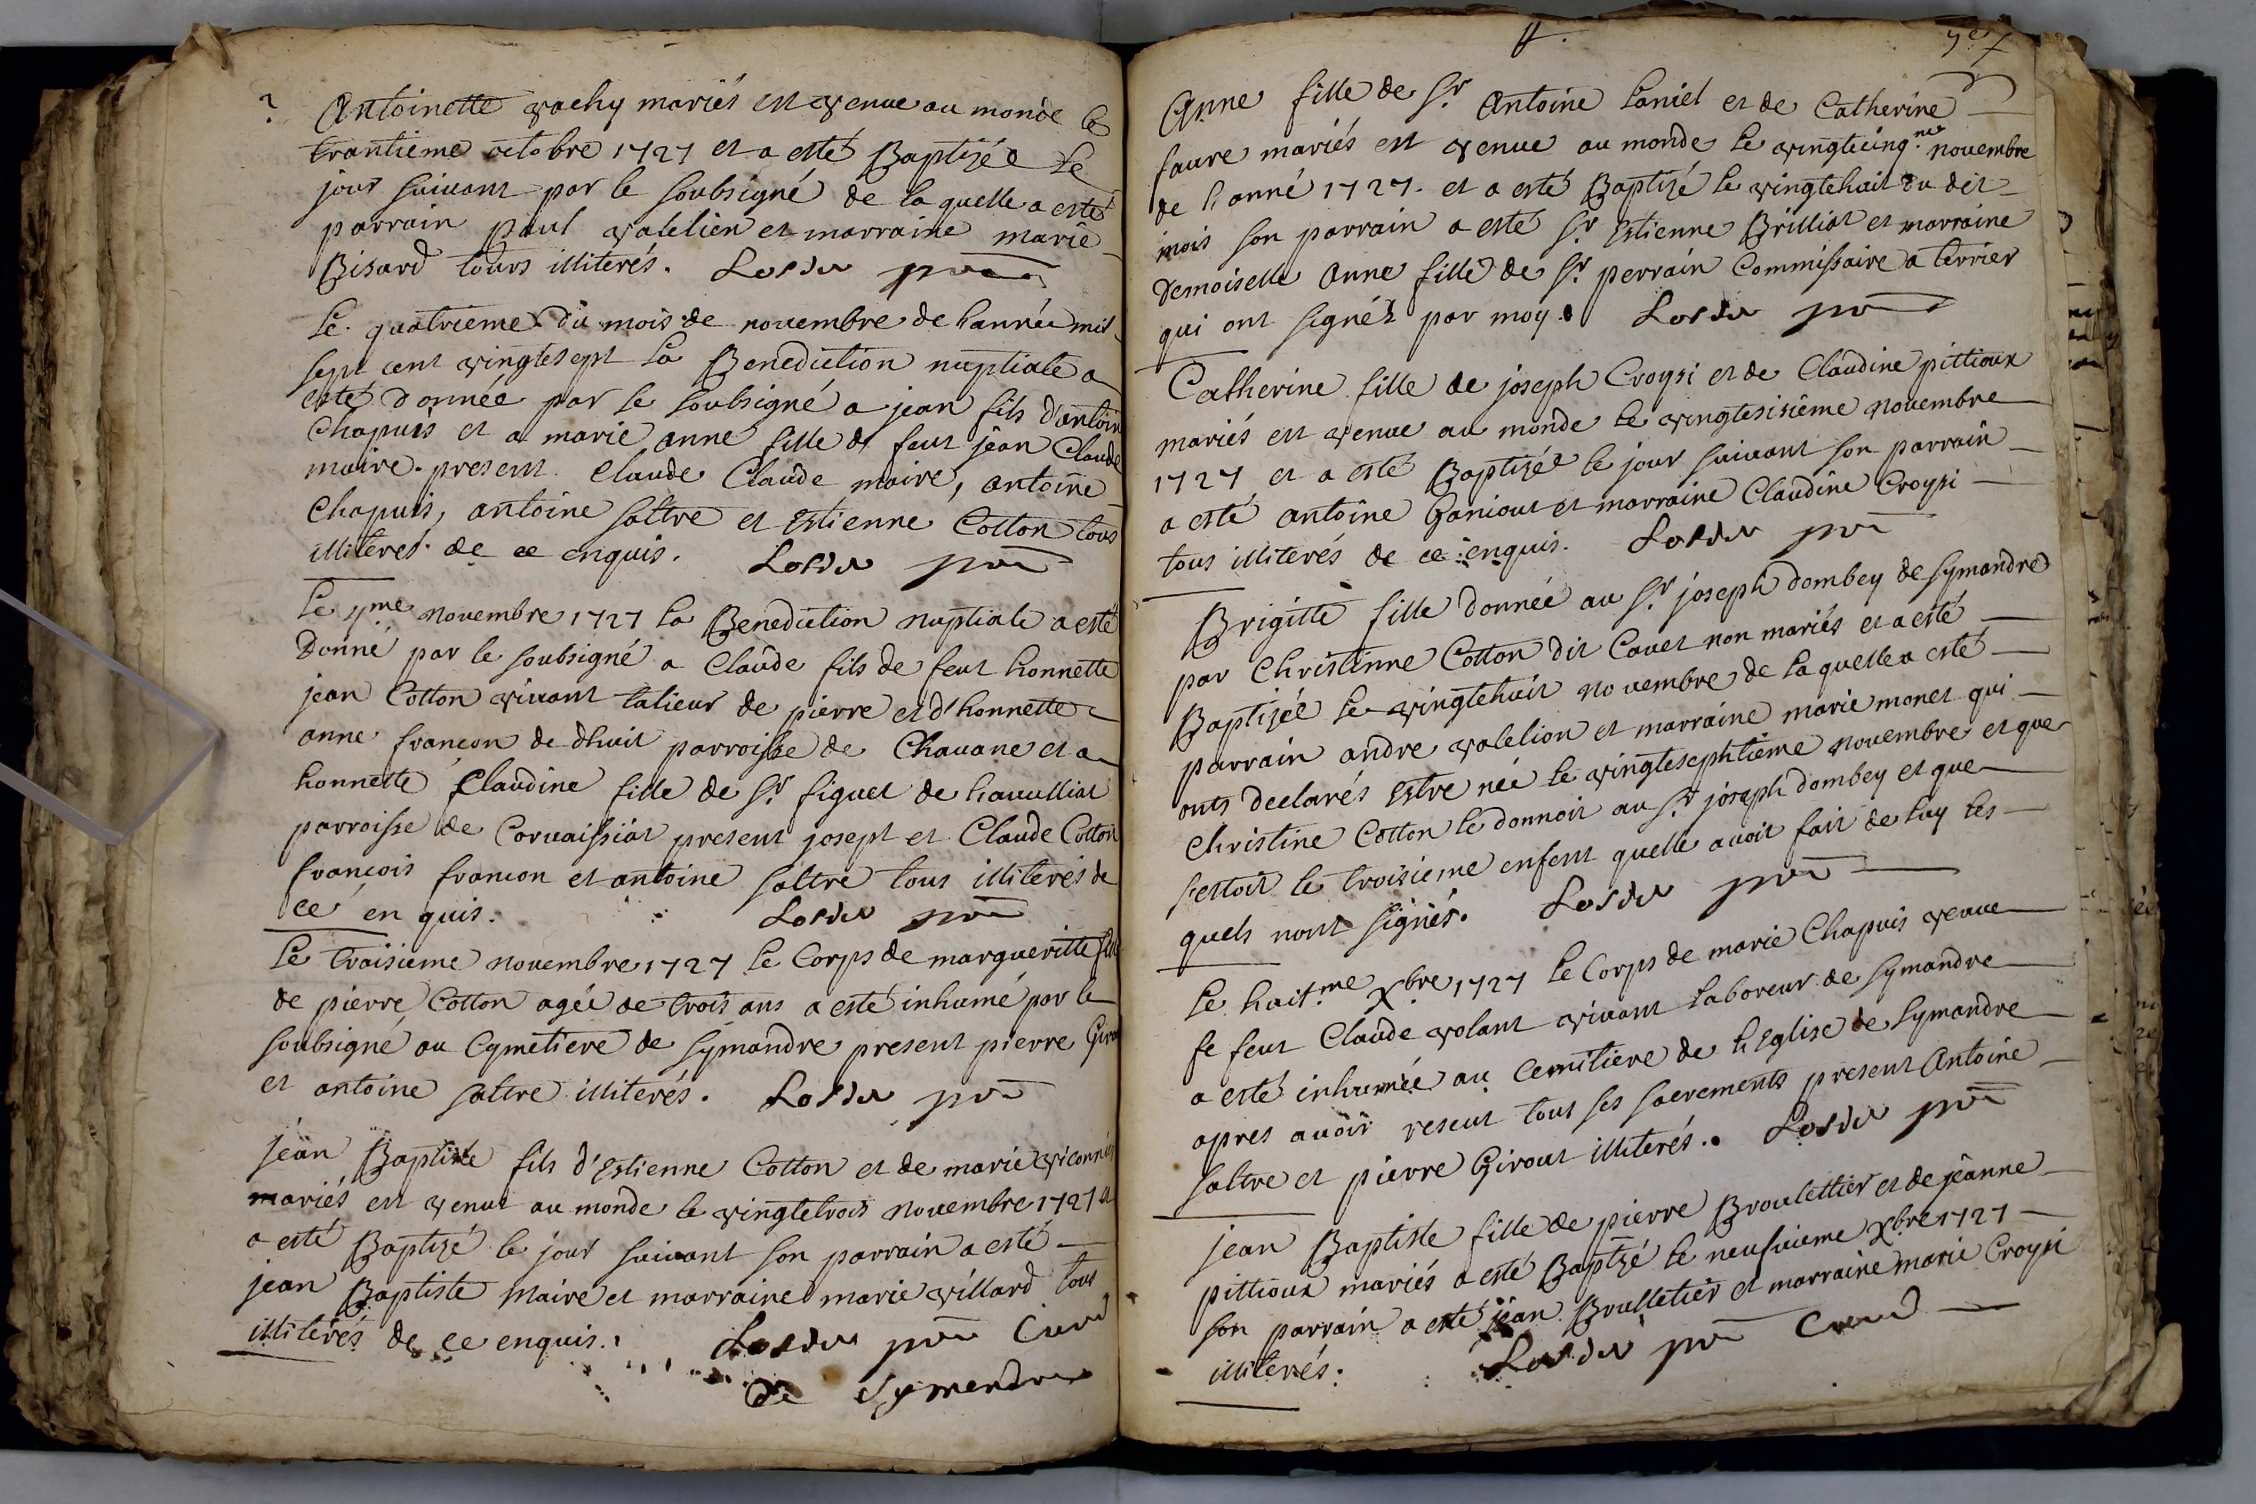 Antoinette vachy mariés est venue au monde le
trantieme octobre 1727 et a esté Baptizée le
jour suivant par le soubsigné de la quelle a esté
parrain paul valelien et marraine marie
Bisard tours illiterés. 
le quatrieme du mois de novembre de l'année mil
sept cent vingtesept la Benediction nuptiale a
esté donnée par le soubsigné a jean fils d'antoin
Chapuis et a marie anne fille de feut jean Claude
maire. present Claude Claude maire, antoine
Chapuis, antoine saltre et Estienne Cotton tous
illiteres de ce enquis.
le 4me novembre 1727 la Benediction nuptiale a esté
Donné par le soubsigné a Claude fils de feut honnette
jean Cotton vivant talieur de pierre et d'honnette
anne françon de dhuit parroisse de Chavane et a
honnette Claudine fille de Sr figuet de
parroisse de Corvaissiat present josept et Claude Cotton
françois françon et antoine saltre tous illiterés de
ce en quis.
le troisieme novembre 1727 le Corps de margueritte fille
de pierre Cotton agée de trois ans a esté inhumé par le
soubsigné au Cymetiere de Symandre present pierre Girou
et antoine saltre illiterés.
jean Baptiste fils d'Estienne Cotton et de marie
mariés est venut au monde le vingtetrois novembre 1727 et
a esté Baptizé le jour suivant son parrain a esté
jean Baptiste Maire et marraine marie villard tous
illiterés de ce enquis. Curé
de Symendre
Anne fille de Sr Antoine Laniel et de Catherine
faure mariés est venue au monde le vingtcinqme novembre
de l'anné 1727. et a esté Baptizé le vingtehuit du dit
mois son parrain a esté Sr Estienne Brilliat et marraine
Demoiselle Anne fille de Sr perrain Commissaire a terrier
qui ont signéz par moy.
Catherine fille de joseph Croysi et de Claudine pittioux
mariés est venue au monde le vingtesisieme novembre
1727 et a esté Baptizée le jour suivant son parrain
a esté antoine Ganiout et marraine Claudine Croysi
tous illiterés de ce enquis.
Brigitte fille donnée au Sr joseph dombey de Symandre
par Christinne Cotton dit Cavet non mariés et a esté
Baptizée le vingtehuit novembre de la quelle a esté
parrain andre valelion et marraine marie monet qui
onts declarés estre née le vingtesephtieme novembre et que
Christine Cotton le donnoit au Sr joseph dombey et que
s'estoit le troisieme enfent quelle avoit fait de luy les
quels nont signés.
le huitme Xbre 1727 le Corps de marie Chapuis veuve
fe feut Claude volant vivant laboreur de Symandre
a esté inhumée au Cemitiere de l'Eglise de Symandre
apres avoir reseut tous ses sacrements present Antoine
saltre et pierre Girout illiterés.
jean Baptiste fille de pierre Broulettier et de jeanne
pittioux mariés a esté Baptizé le neufvieme Xbre 1727
son parrain a esté jean Brulletier et marraine marie Croysi
illiterés. Curé